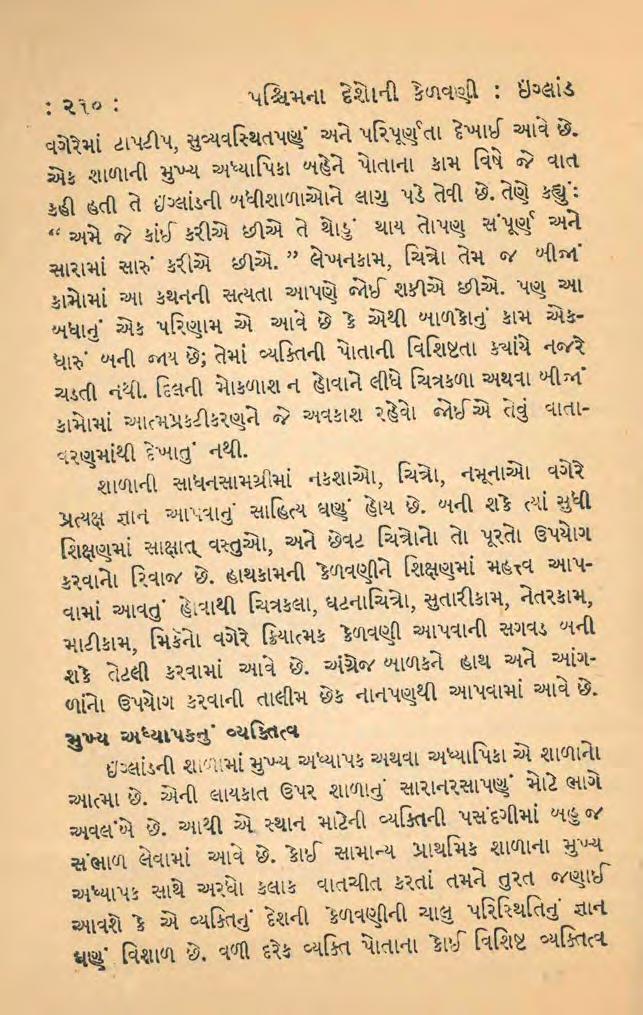 : ૨૧૦ : પશ્ચિમના દેશોની કેળવણી : ઇંગ્લાંડ
વગેરેમાં ટાપટીપ, સુવ્યવસ્થિતપણું અને પરિપૂર્ણતા દેખાઈ આવે છે.
એક શાળાની મુખ્ય અધ્યાપિકા બહેને પોતાના કામ વિષે જે વાત
કહી હતી તે ઇંગ્લાંડની બધીશાળાઓને લાગુ પડે તેવી છે. તેણે કહ્યું:
“ અમે જે કાંઈ કરીએ છીએ તે થોડું થાય તોપણ સંપૂર્ણ અને
સારામાં સારું કરીએ છીએ. ” લેખનકામ, ચિત્રો તેમ જ બીજાં
કામોમાં આ કથનની સત્યતા આપણે જોઈ શકીએ છીએ. પણ આ
બધાનું એક પરિણામ એ આવે છે કે એથી બાળકોનું કામ એક-
ધારું બની જાય છે; તેમાં વ્યક્તિની પોતાની વિશિષ્ટતા ક્યાંયે નજરે
ચડતી નથી. દિલની મોકળાશ ન હોવાને લીધે ચિત્રકળા અથવા બીજાં
કામોમાં આત્મપ્રકટીકરણને જે અવકાશ રહેવો જોઈએ તેવું વાતા-
વરણમાંથી દેખાતું નથી.
શાળાની સાધનસામગ્રીમાં નકશાઓ, ચિત્રો, નમૂનાઓ વગેરે
પ્રત્યક્ષ જ્ઞાન આપવાનું સાહિત્ય ઘણું હોય છે. બની શકે ત્યાં સુધી
શિક્ષણમાં સાક્ષાત્ વસ્તુઓ, અને છેવટ ચિત્રોનો તો પૂરતો ઉપયોગ
કરવાનો રિવાજ છે. હાથકામની કેળવણીને શિક્ષણમાં મહત્ત્વ આપ-
વામાં આવતું હોવાથી ચિત્રકલા, ઘટનાચિત્રો, સુતારીકામ, નેતરકામ,
માટીકામ, મિકૅનો વગેરે ક્રિયાત્મક કેળવણી આપવાની સગવડ બની
શકે તેટલી કરવામાં આવે છે. અંગ્રેજ બાળકને હાથ અને આંગ-
ળાંનો ઉપયોગ કરવાની તાલીમ છેક નાનપણથી આપવામાં આવે છે.
મુખ્ય અધ્યાપકનું વ્યક્તિત્વ
ઇંગ્લાંડની શાળામાં મુખ્ય અધ્યાપક અથવા અધ્યાપિકા એ શાળાનો
આત્મા છે. એની લાયકાત ઉપર શાળાનું સારાનરસાપણું મોટે ભાગે
અવલંબે છે. આથી એ સ્થાન માટેની વ્યક્તિની પસંદગીમાં બહુ જ
સંભાળ લેવામાં આવે છે. કોઈ સામાન્ય પ્રાથમિક શાળાના મુખ્ય
અધ્યાપક સાથે અરધો કલાક વાતચીત કરતાં તમને તુરત જણાઈ
આવશે કે એ વ્યક્તિનું દેશની કેળવણીની ચાલુ પરિસ્થિતિનું જ્ઞાન
ઘણું વિશાળ છે. વળી દરેક વ્યક્તિ પોતાના કોઈ વિશિષ્ટ વ્યક્તિત્વ